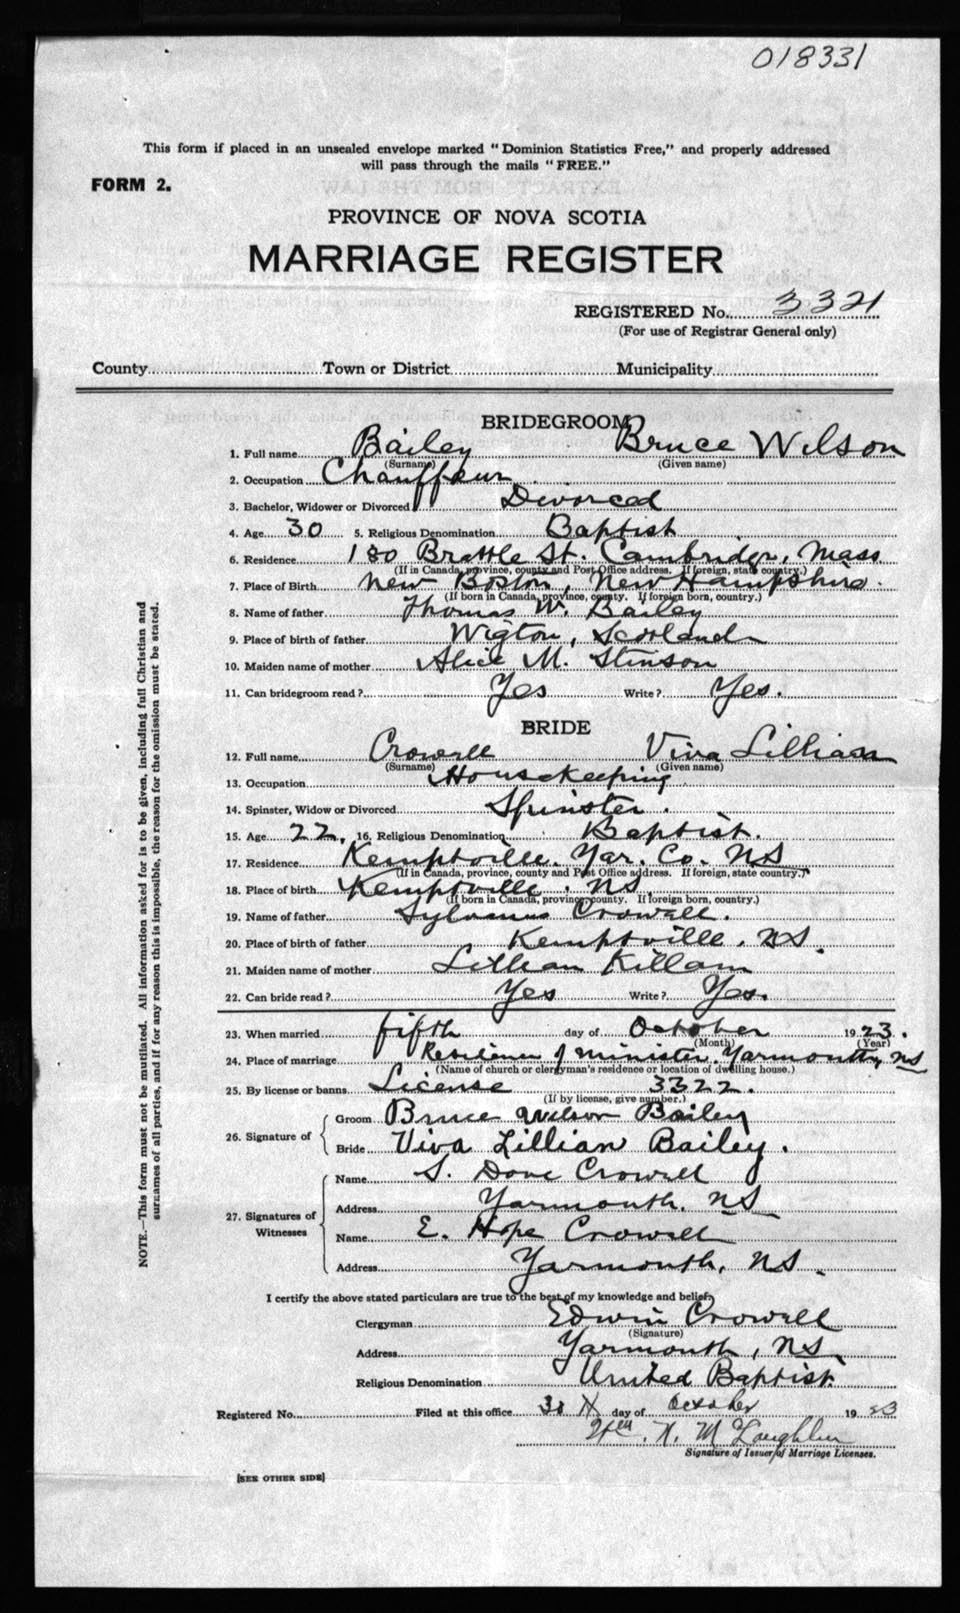 018331
This form if placed in an unsealed envelope marked "Dominion Statistics Free," and properly addressed
will pass through the mails "FREE."
FORM 2.
PROVINCE OF NOVA SCOTIA
MARRIAGE REGISTER
REGISTERED No. 3321
(For use of Registrar General only)
County Town or District Municipality
BRIDEGROOM
1. Full name Bailey Bruce Wilson
(Surname) (Given name)
2. Occupation Chauffeur
3. Bachelor, Widower or Divorced Divorced
4. Age 30 5. Religious Denomination Baptist
6. Residence 180 Brattle St. Cambridge, Mass
(If in Canada, province, county and Post Office address. If foreign, state country.)
7. Place of Birth New Boston, New Hampshire.
(If born in Canada, province, county. If foreign born, country.)
8. Name of father Thomas W. Bailey
9. Place of birth of father Wigton, Scotland
10. Maiden name of mother Alice M. Stinson
11. Can bridegroom read? Yes Write? Yes.
BRIDE
12. Full name Crowell Viva Lillian
(Surname) (Given name)
13. Occupation Housekeeping
14. Spinster, Widow or Divorced Spinster.
15. Age 22. 16. Religious Denomination Baptist.
17. Residence Kemptville. Yar. Co. NS
(If in Canada, province, county and Post Office address. If foreign, state country.)
18. Place of birth Kemptville. NS.
(If born in Canada, province, county. If foreign born, country.)
19. Name of father Sylvanus Crowell.
20. Place of birth of father Kemptville. NS.
21. Maiden name of mother Lillian Killam
22. Can bride read? Yes Write? Yes.
23. When married fifth day of October 1923.
(Month) (Year)
24. Place of marriage Residence of minister. Yarmouth, NS
(Name of church or clergyman's residence or location of dwelling house.)
25. By license or banns License 3322.
(If by license, give number.)
26. Signature of
Groom Bruce Wilson Bailey
Bride Viva Lillian Bailey.
27. Signatures of Witnesses
Name S. Dove Crowell
Address Yarmouth. NS
Name E. Hope Crowell
Address Yarmouth, NS.
I certify the above stated particulars are true to the best of my knowledge and belief.
Clergyman Edwin Crowell
(Signature)
Address Yarmouth, NS.
Religious Denomination United Baptist.
Registered No. Filed at this office 30 day of October 1923
N. McLaughlin
Signature of Issuer of Marriage Licenses.
[SEE OTHER SIDE]
NOTE.—This form must not be mutilated. All information asked for is to be given, including full Christian and
surnames of all parties, and if for any reason this is impossible, the reason for the omission must be stated.